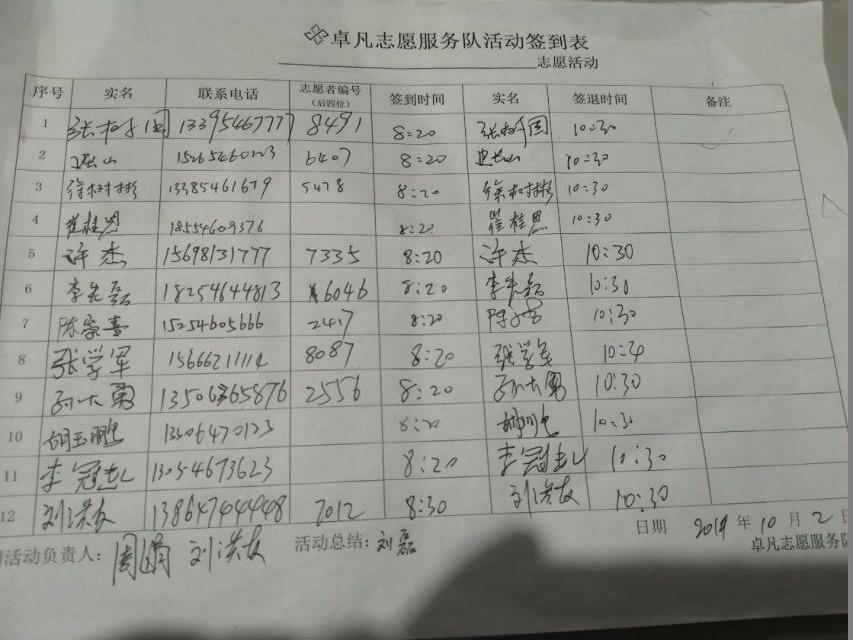 卓凡志愿服务队活动签到表
志愿活动
序号 实名 联系电话 志愿者编号（后四位） 签到时间 实名 签退时间 备注
1 张树国 13395467777 8491 8:20 张树国 10:30
2 15265460223 6407 8:20 10:30
3 徐树彬 13385461679 5478 8:20 徐树彬 10:30
4 崔桂恩 18554609376 8:20 崔桂恩 10:30
5 许杰 15698131777 7335 8:20 许杰 10:30
6 李先磊 18254644813 6046 8:20 10:30
7 陈崇喜 15254605666 2417 8:20 10:30
8 张学军 15666211114 8087 8:20 张学军 10:30
9 孙大勇 13506365876 2556 8:20 孙大勇 10:30
10 胡玉鹏 13506470123 8:20 10:30
11 李冠 13054673623 8:20 李冠 10:30
12 刘洪友 13864704448 7012 8:30 刘洪友 10:30
活动负责人： 周娟 刘洪友 活动总结：刘磊 日期 2019 年 10 月 2 日
卓凡志愿服务队